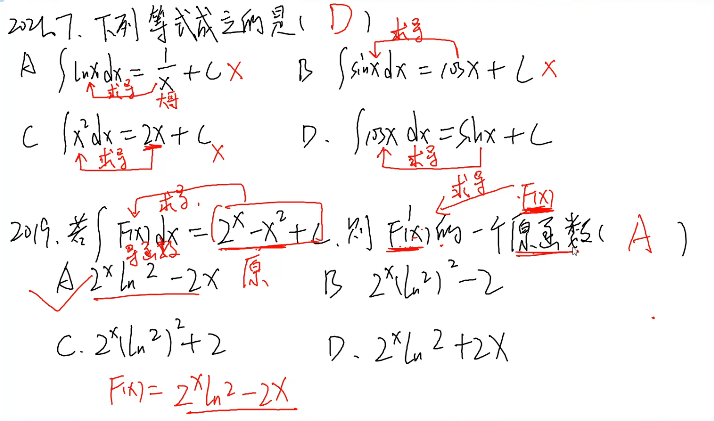 2021.7. 下列等式成立的是( D )
求导
A ∫lnxdx = 1/x + C × B ∫sinxdx = cosx + C ×
求导
C ∫x²dx = 2x + C × D. ∫cosxdx = sinx + C
求导 求导
求导 F(x)
求导.
2019. 若∫F(x)dx = 2ˣ-x²+C. 则F'(x)的一个原函数( A )
导函数
✓A 2ˣln2-2x 原 B 2ˣ(ln2)²-2
C. 2ˣ(ln2)²+2 D. 2ˣln2+2x
F(x) = 2ˣln2-2x